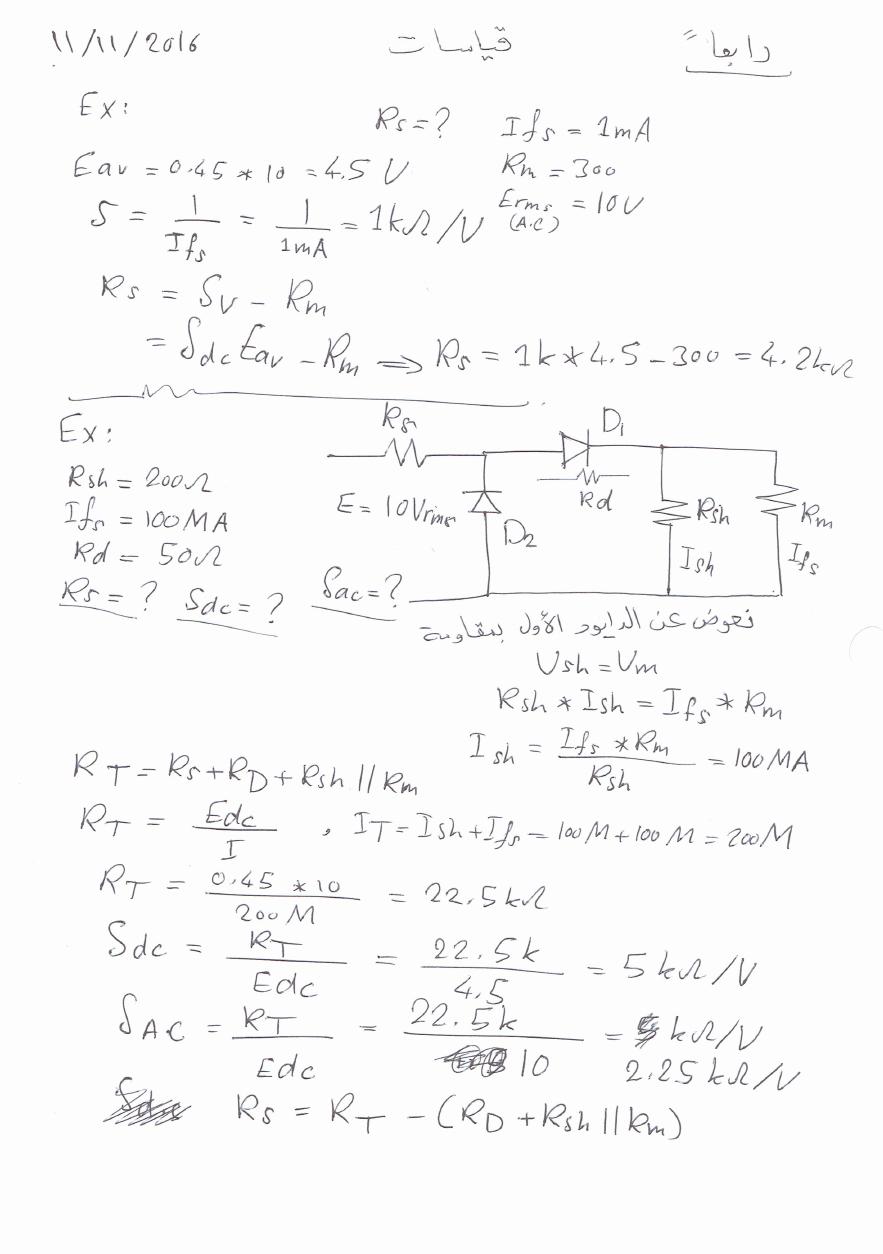 11/11/2016 قياسات رابعا"
Ex:
Rs = ? Ifs = 1mA
Eav = 0.45 * 10 = 4.5 V Rm = 300
S = 1/Ifs = 1/1mA = 1kΩ/V Erms = 10V
(A.C)
Rs = Sv - Rm
= Sdc Eav - Rm ⇒ Rs = 1k * 4.5 - 300 = 4.2kΩ
Ex:
Rs D1
Rsh = 200Ω
Ifs = 100MA E = 10Vrms Rd Rsh Rm
Rd = 50Ω D2 Ish Ifs
Rs = ? Sdc = ? Sac = ?
نعوض عن الدايود الأول بمقاومة
Vsh = Vm
Rsh * Ish = Ifs * Rm
Ish = Ifs * Rm / Rsh = 100MA
RT = Rs + RD + Rsh // Rm
RT = Edc / I , IT = Ish + Ifs = 100M + 100M = 200M
RT = 0.45 * 10 / 200M = 22.5kΩ
Sdc = RT / Edc = 22.5k / 4.5 = 5kΩ/V
SAC = RT / Edc = 22.5k / 10 = kΩ/V
2.25kΩ/V
Rs = RT - (RD + Rsh // Rm)